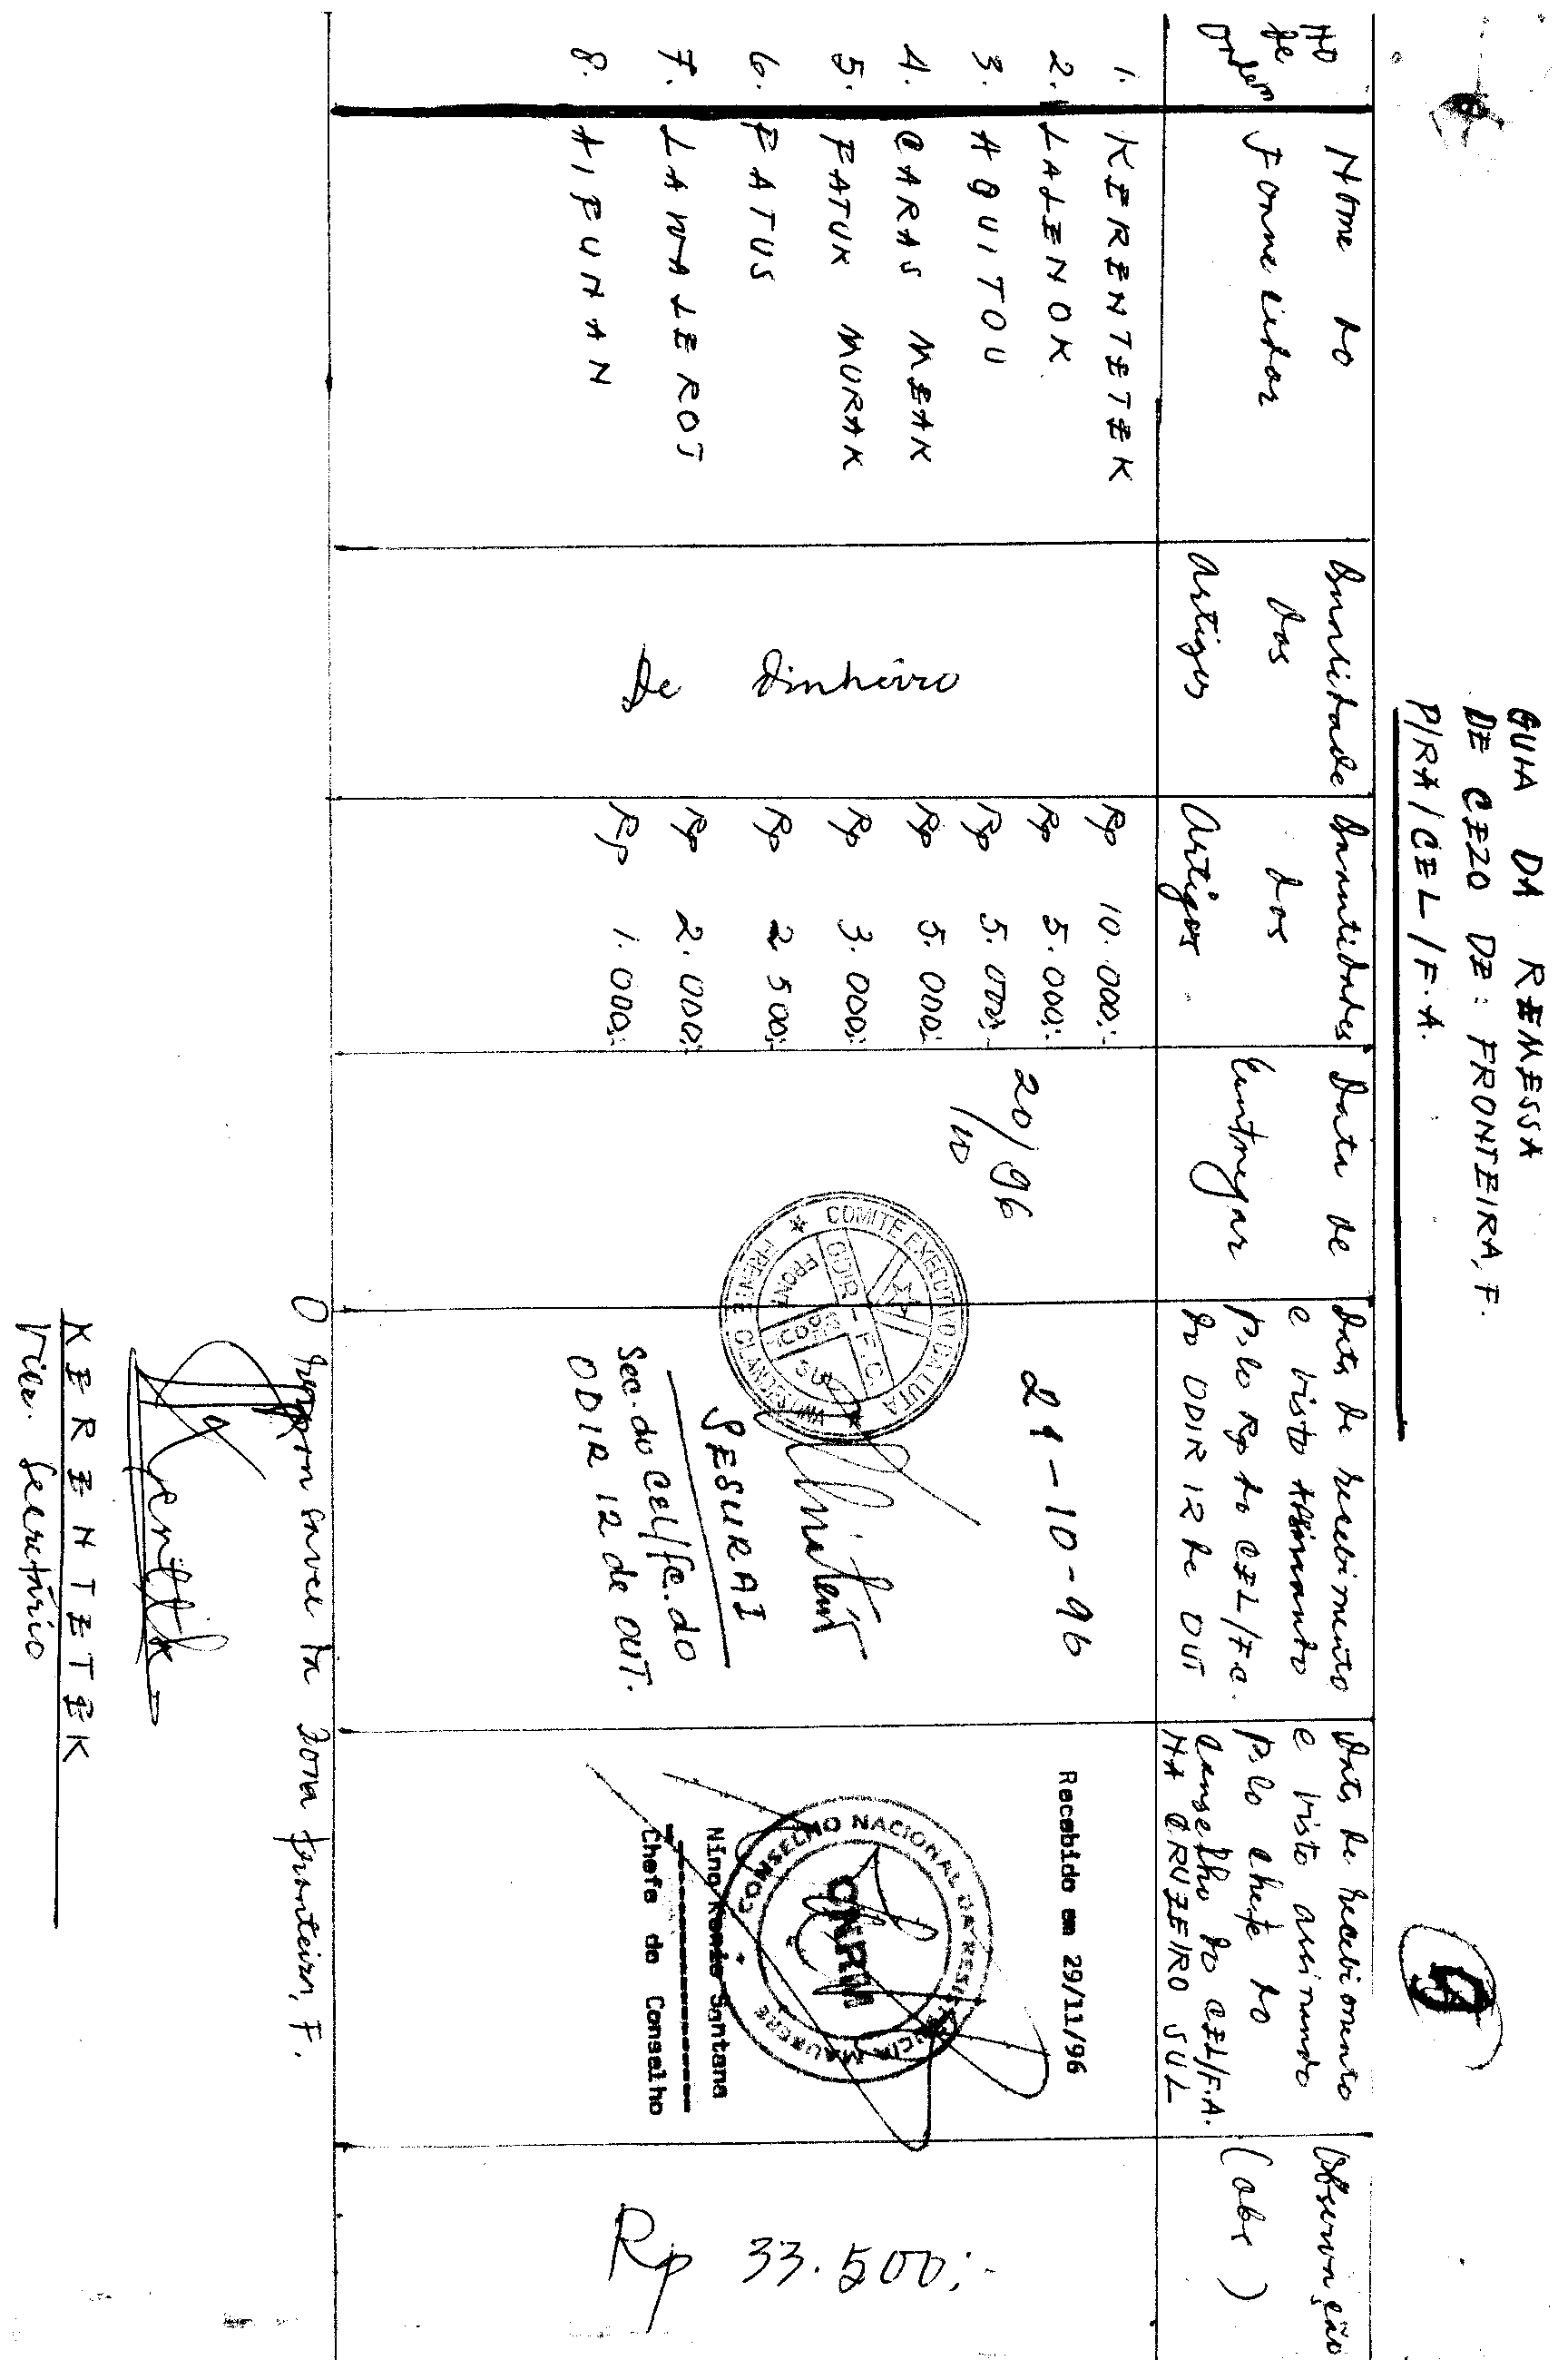 GUIA DA REMESSA
DE CEZO DE: FRONTEIRA, F.
P/RA/CEL/F.A.
9
No de ordem
Nome do Fornecedor
Qualidade dos artigos
Quantidades dos Artigos
Data de Entregar
Data de Recebimento e visto Assinando pelo Rp do CEL/F.C. do ODIR 12 de OUT
Data de Recebimento e visto assinando pelo chefe do conselho do CEL/F.A. NA CRUZEIRO SUL
Observação (obs)
1. KERENTETEK Rp 10.000;-
2. LALENOK Rp 5.000;-
3. AQUITOU Rp 5.000;-
4. CARAS MEAK Rp 5.000;-
5. FATUK MURAK Rp 3.000;-
6. FATUS Rp 2 500;-
7. LAWALEROT Rp 2.000;-
8. AIFUNAN Rp 1.000;-
De Dinheiro
20/10/96
COMITE EXECUTIVO DA LUTA
FRENTE CLANDESTINA
21-10-96
SESURAI
Sec. do CEL/Fc. do
ODIR 12 de OUT.
Recebido em 29/11/96
CONSELHO NACIONAL DA RESISTENCIA MAUBERE
CNRM
Nino Konis Santana
Chefe do Conselho
Rp 33.500;-
O Responsavel da zona fronteira, F.
KERENTETEK
Vice. Secretário